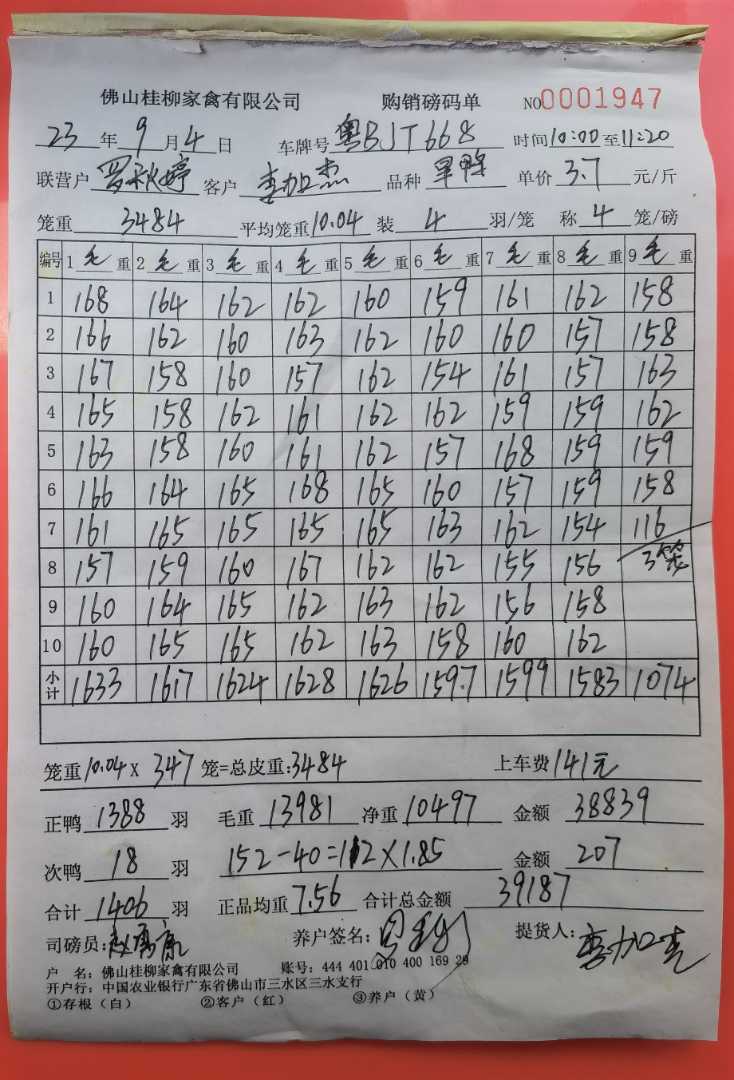 佛山桂柳家禽有限公司 购销磅码单 NO0001947
23年9月4日 车牌号粤BJT668 时间10:00至11:20
联营户罗秋婷 客户李加杰 品种旱鸭 单价3.7元/斤
笼重3484 平均笼重10.04装4羽/笼 称4笼/磅
编号 1毛重 2毛重 3毛重 4毛重 5毛重 6毛重 7毛重 8毛重 9毛重
1 168 164 162 162 160 159 161 162 158
2 166 162 160 163 162 160 160 157 158
3 167 158 160 157 162 154 161 157 163
4 165 158 162 161 162 162 159 159 162
5 163 158 160 161 162 157 168 159 159
6 166 164 165 168 165 160 157 159 158
7 161 165 165 165 165 163 162 154 116
8 157 159 160 167 162 162 155 156 3笼
9 160 164 165 162 163 162 156 158
10 160 165 165 162 163 158 160 162
小计 1633 1617 1624 1628 1626 1597 1599 1583 1074
笼重10.04X 347笼=总皮重:3484 上车费141元
正鸭1388羽 毛重13981净重10497 金额38839
次鸭18羽 152-40=112×1.85 金额207
合计1406羽 正品均重7.56合计总金额39187
司磅员: 养户签名: 提货人:李加杰
户 名:佛山桂柳家禽有限公司 账号:444 401 010 400 169 29
开户行:中国农业银行广东省佛山市三水区三水支行
①存根（白） ②客户（红） ③养户（黄）